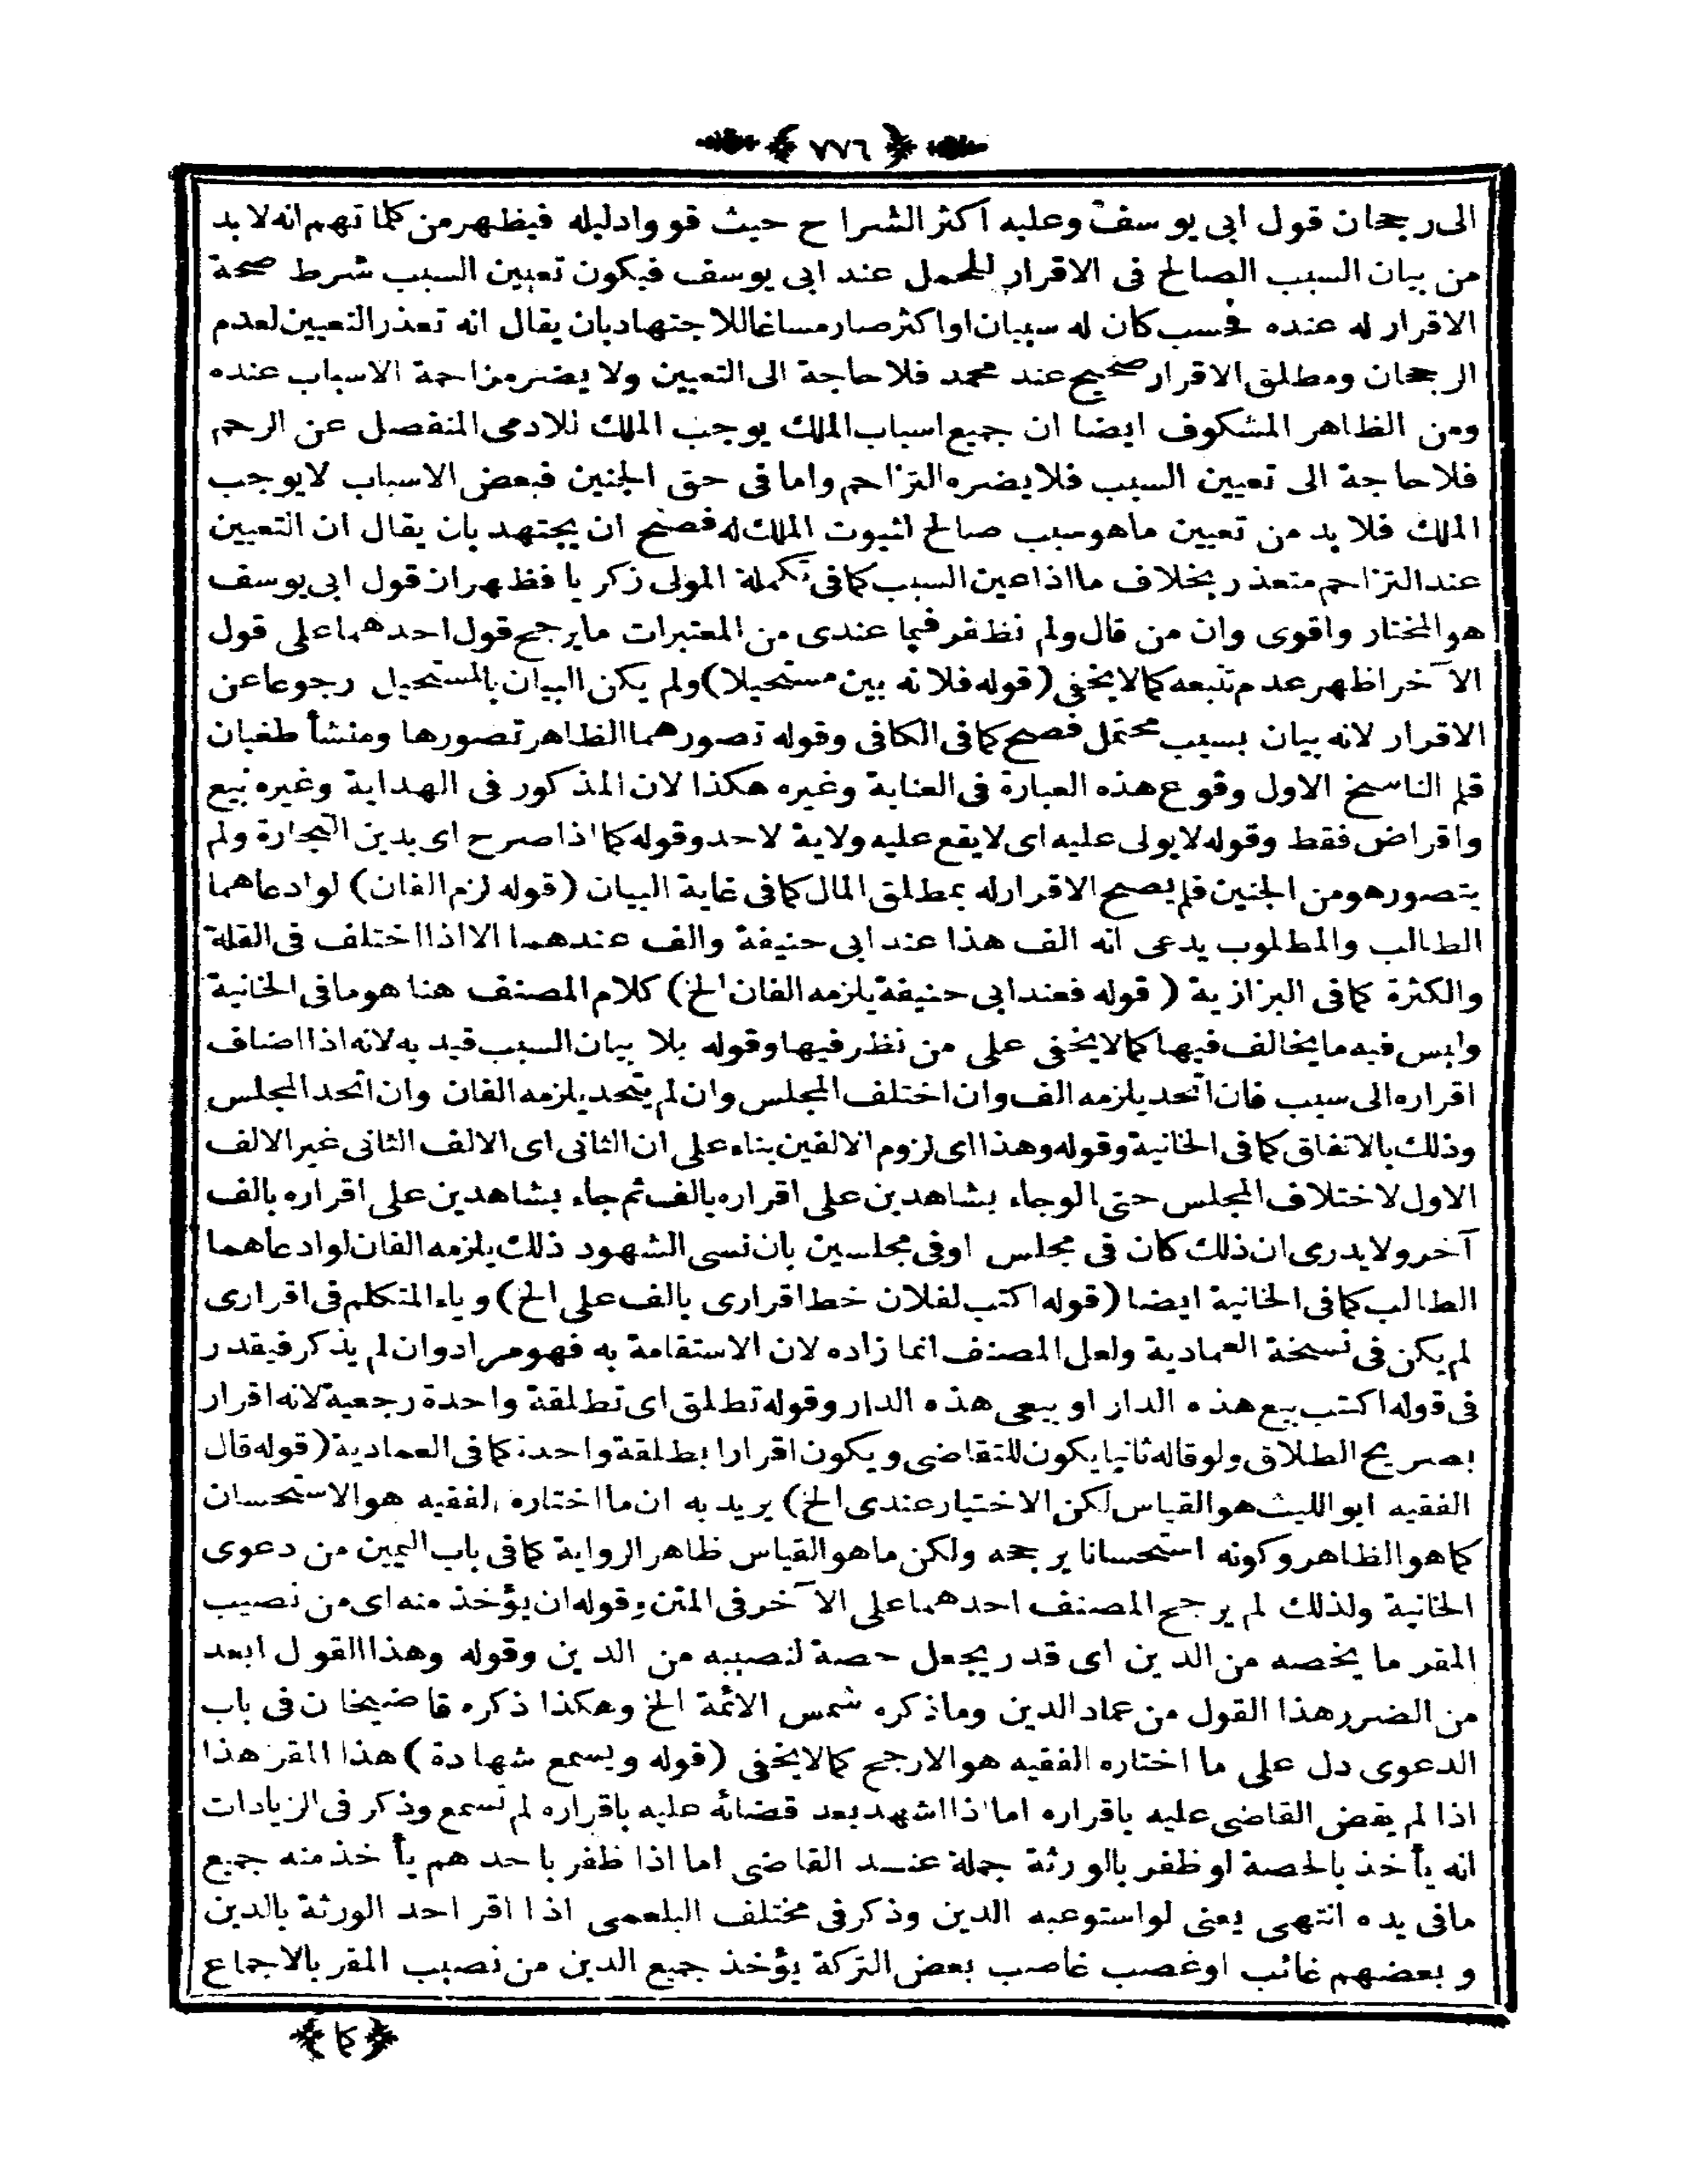 ﴿ ٧٧٦ ﴾
الى رجحان قول ابى يوسف وعليه اكثر الشراح حيث قووا دليله فيظهر من كلماتهم انه لا بد
من بيان السبب الصالح فى الاقرار للحمل عند ابى يوسف فيكون تعيين السبب شرط صحة
الاقرار له عنده فحسب كان له سببان او اكثر صار مساغا للاجتهاد بان يقال انه تعذر التعيين لعدم
الرجحان ومطلق الاقرار صحيح عند محمد فلا حاجة الى التعيين ولا يضر مزاحمة الاسباب عنده
ومن الظاهر المشكوف ايضا ان جميع اسباب الملك يوجب الملك للادمى المنفصل عن الرحم
فلا حاجة الى تعيين السبب فلا يضره التزاحم واما فى حق الجنين فبعض الاسباب لا يوجب
الملك فلا بد من تعيين ما هو سبب صالح لثبوت الملك له فصح ان يجتهد بان يقال ان التعيين
عند التزاحم متعذر بخلاف ما اذا عين السبب كما فى تكملة المولى زكريا فظهر ان قول ابى يوسف
هو المختار واقوى وان من قال ولم نظفر فيما عندى من المعتبرات ما يرجح قول احدهما على قول
الآخر اظهر عدم تتبعه كما لا يخفى (قوله فلانه بين مستحيلا) ولم يكن البيان بالمستحيل رجوعا عن
الاقرار لانه بيان بسبب محتمل فصح كما فى الكافى وقوله تصورهما الظاهر تصورها ومنشأ طغيان
قلم الناسخ الاول وقوع هذه العبارة فى العناية وغيره هكذا لان المذكور فى الهداية وغيره بيع
واقراض فقط وقوله لا يولى عليه اى لا يقع عليه ولاية لاحد وقوله كما اذا صرح اى بدين التجارة ولم
يتصور هو من الجنين فلم يصح الاقرار له بمطلق المال كما فى غاية البيان (قوله لزم الفان) لو ادعاهما
الطالب والمطلوب يدعى انه الف هذا عند ابى حنيفة والف عندهما الا اذا اختلف فى القلة
والكثرة كما فى البزازية (قوله فعند ابى حنيفة يلزمه الفان الخ) كلام المصنف هنا هو ما فى الخانية
وليس فيه ما يخالف فيها كما لا يخفى على من نظر فيها وقوله بلا بيان السبب قيد به لانه اذا اضاف
اقراره الى سبب فان اتحد يلزمه الف وان اختلف المجلس وان لم يتحد يلزمه الفان وان اتحد المجلس
وذلك بالاتفاق كما فى الخانية وقوله وهذا اى لزوم الالفين بناء على ان الثانى اى الالف الثانى غير الالف
الاول لاختلاف المجلس حتى الو جاء بشاهدين على اقراره بالف ثم جاء بشاهدين على اقراره بالف
آخر ولا يدرى ان ذلك كان فى مجلس او فى مجلسين بان نسى الشهود ذلك يلزمه الفان لو ادعاهما
الطالب كما فى الخانية ايضا (قوله اكتب لفلان خط اقرارى بالف على الخ) وياء المتكلم فى اقرارى
لم يكن فى نسخة العمادية ولعل المصنف انما زاده لان الاستقامة به فهو مراد وان لم يذكر فيقدر
فى قوله اكتب بيع هذه الدار او بيعى هذه الدار وقوله تطلق اى تطلقة واحدة رجعية لانه اقرار
بصريح الطلاق ولو قاله ثانيا يكون للتقاضى ويكون اقرارا بطلقة واحدة كما فى العمادية (قوله قال
الفقيه ابو الليث هو القياس لكن الاختيار عندى الخ) يريد به ان ما اختاره الفقيه هو الاستحسان
كما هو الظاهر وكونه استحسانا يرجحه ولكن ما هو القياس ظاهر الرواية كما فى باب اليمين من دعوى
الخانية ولذلك لم يرجح المصنف احدهما على الآخر فى المتن وقوله ان يؤخذ منه اى من نصيب
المقر ما يخصه من الدين اى قدر يجعل حصة لنصيبه من الدين وقوله وهذا القول ابعد
من الضرر هذا القول من عماد الدين وما ذكره شمس الائمة الخ وهكذا ذكره قاضيخان فى باب
الدعوى دل على ما اختاره الفقيه هو الارجح كما لا يخفى (قوله ويسمع شهادة) هذا المقر هذا
اذا لم يقض القاضى عليه باقراره اما اذا اشهد بعد قضائه عليه باقراره لم تسمع وذكر فى الزيادات
انه يأخذ بالحصة او ظفر بالورثة جملة عند القاضى اما اذا ظفر باحدهم يأخذ منه جميع
ما فى يده انتهى يعنى لو استوعبه الدين وذكر فى مختلف البلعمى اذا اقر احد الورثة بالدين
وبعضهم غائب او غصب غاصب بعض التركة يؤخذ جميع الدين من نصيب المقر بالاجماع
﴿ كما ﴾